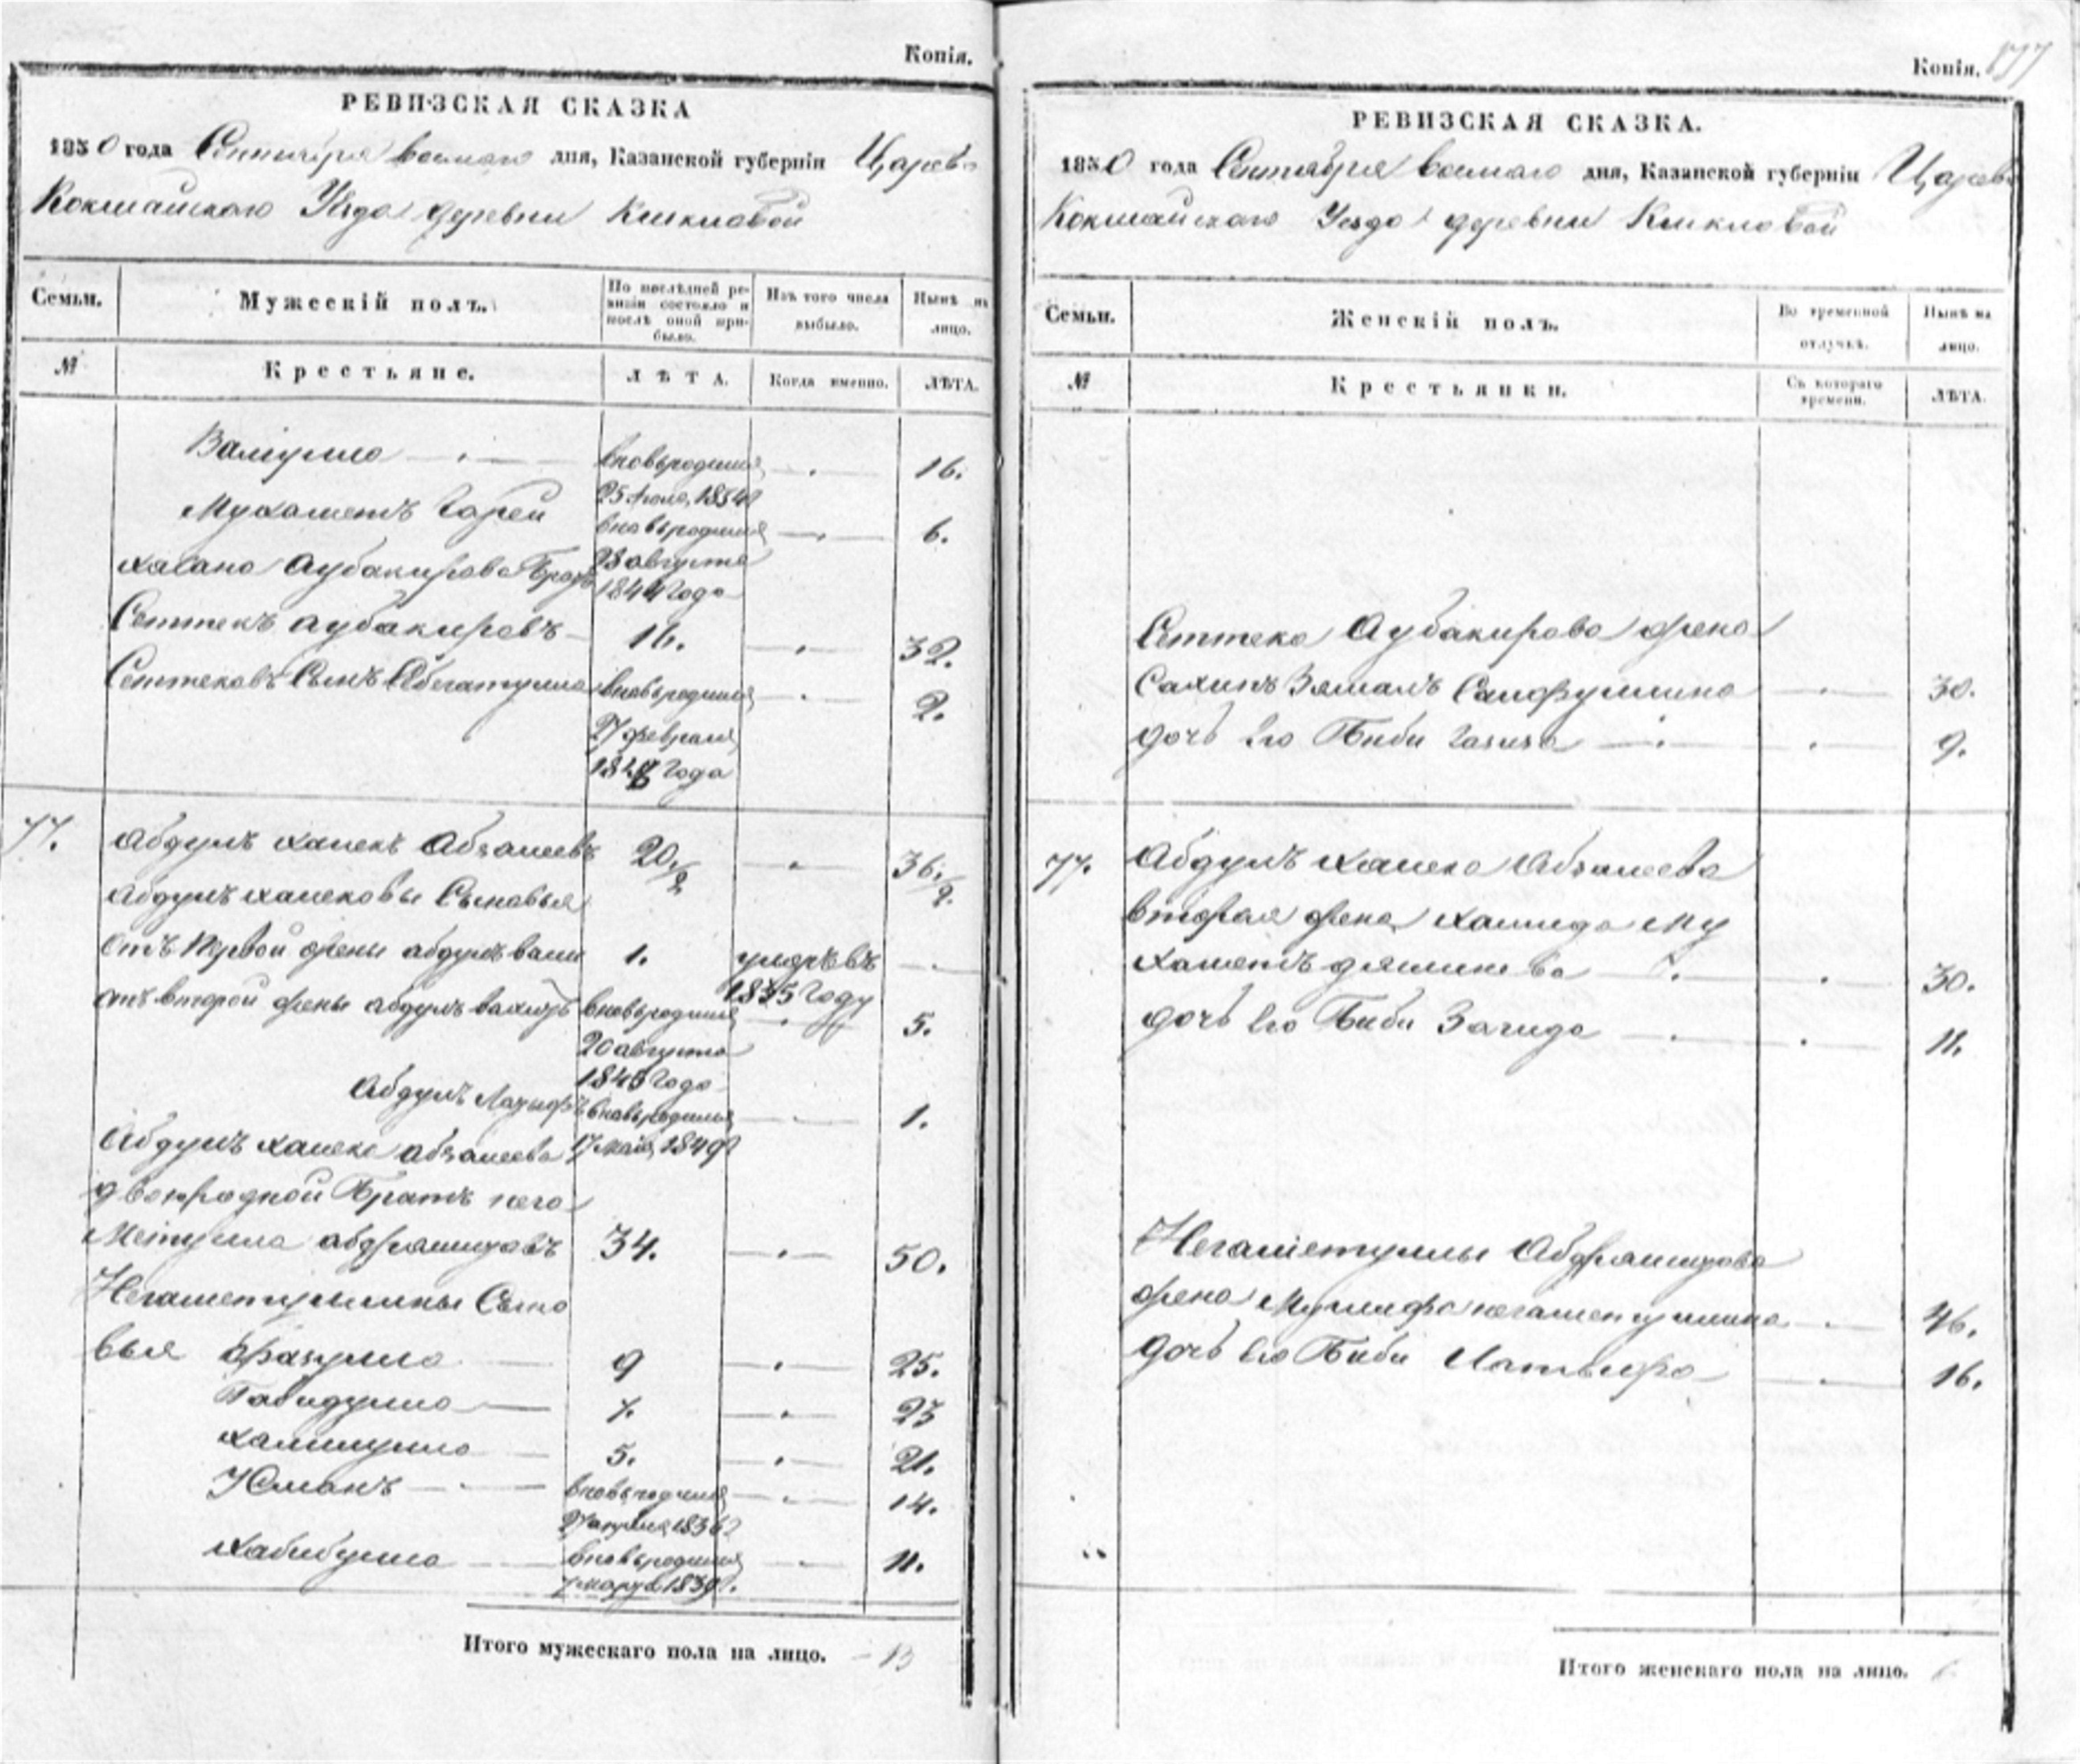 Копія.
РЕВИЗСКАЯ СКАЗКА
1850 года Сентября восмаго дня, Казанской губерніи Царево
Кокшайскаго Уезда деревни
Семьи.
Мужескій полъ.
По послѣдней ре-
визіи состояло и
послѣ оной при-
было.
Изъ того числа
выбыло.
Нынѣ на
лицо.
№
Крестьяне.
ЛѢТА.
Когда именно.
ЛѢТА.
Валиулла вновьродился 16.
25 1834
Мухаметъ Гарей вновьродился 6.
23 августа
Хасана Аубакирова Братъ 1844 Года
Сеттекъ Аубакировъ 16. 32.
Сеттековъ Сынъ вновьродился 2.
27 февраля
1848 Года
77. Абдулъ Халекъ Абзалеевъ 20./2 36./2.
Абдулъ Халековы Сыновья
Отъ Первой жены Абдулъвали 1. умеръ въ
1835 Году
отъ второй жены Абдулъ вахитъ вновьродился 5.
20 августа
1845 Года
Абдулъ вновьродился 1.
17 мая 1849
Абдулъ Халека Абзалеева
двоюродной Братъ него
Метулла Абдрашитовъ 34. 50.
Негаметуллины Сыно
вья Фазулла 9 25.
Габидулла 7. 23
Халиулла 5. 21.
Юсманъ вновьродился 14.
27 апреля 1836
Хабибулла вновьродился 11.
7 марта 1839.
Итого мужескаго пола на лицо. 13
Копія. 177
РЕВИЗСКАЯ СКАЗКА.
1850 года Сентября восмаго дня, Казанской губерніи Царево
Кокшайскаго Уезда деревни
Семьи.
Женскій полъ.
Во временной
отлучкѣ.
Нынѣ на
лицо.
№
Крестьянки.
Съ котораго
времени.
ЛѢТА.
Сеттека Аубакирова жена
Сахипъ Зямалъ Сайфуллина 30.
дочь его Биби Газиза 9.
77. Абдулъ Халека Абзалеева
вторая жена Хамида Му
хаметъ 30.
дочь его Биби Загида 11.
Негаметуллы Абдрашитова
жена негаметуллина 46.
дочь его Биби 16.
Итого женскаго пола на лицо.